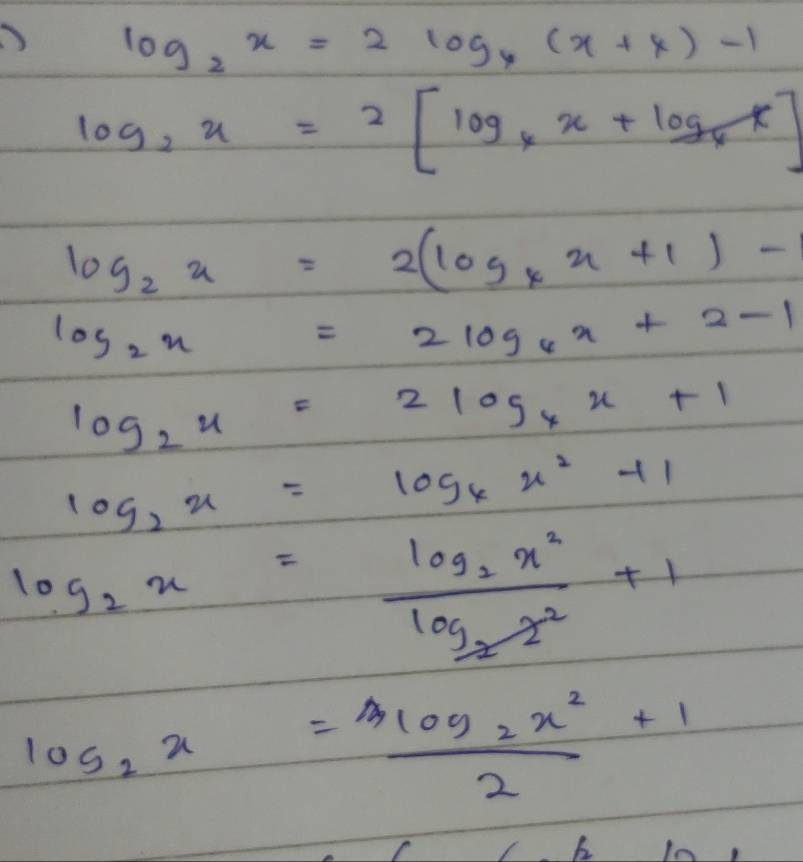 ) log₂ x = 2 log₄ (x + 4) - 1
log₂ x = 2 [log₄ x + log₄ 4]
log₂ x = 2(log₄ x + 1) - 1
log₂ x = 2 log₄ x + 2 - 1
log₂ x = 2 log₄ x + 1
log₂ x = log₄ x² + 1
log₂ x = log₂ x² / log₂ 2² + 1
log₂ x = log₂ x² / 2 + 1